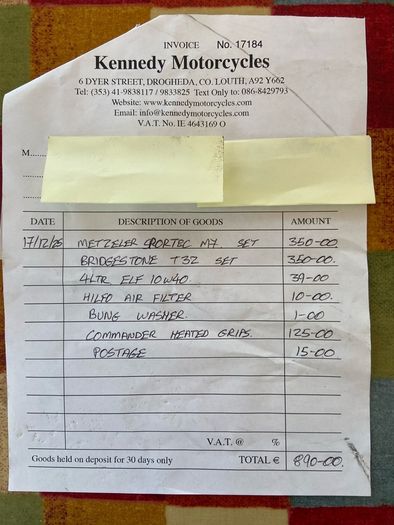 INVOICE No. 17184
Kennedy Motorcycles
6 DYER STREET, DROGHEDA, CO. LOUTH, A92 Y662
Tel: (353) 41-9838117 / 9833825 Text Only to: 086-8429793
Website: www.kennedymotorcycles.com
Email: info@kennedymotorcycles.com
V.A.T. No. IE 4643169 O
M........
........
DATE DESCRIPTION OF GOODS AMOUNT
17/12/25 METZELER SPORTEC M7 SET 350-00
BRIDGESTONE T32 SET 350-00
4LTR ELF 10W40 39-00
HILFO AIR FILTER 10-00.
BUNG WASHER. 1-00
COMMANDER HEATED GRIPS. 125-00
POSTAGE 15-00
V.A.T. @ %
Goods held on deposit for 30 days only TOTAL € 890-00.